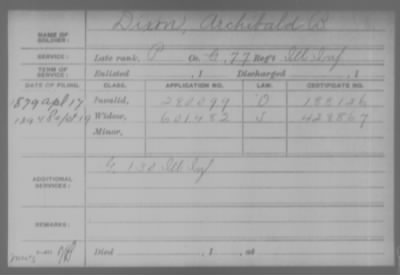 NAME OF SOLDIER: Dixon, Archibald B
SERVICE: Late rank, P Co. G, 77 Reg't Ill Inf
TERM OF SERVICE: Enlisted , 1 Discharged , 1
DATE OF FILING. CLASS. APPLICATION NO. LAW. CERTIFICATE NO.
1879 Apl 17 Invalid, 280099 O 188126
1894 Sept 19 Widow, 601482 S 428867
Minor,
ADDITIONAL SERVICES: G 130 Ill Inf
REMARKS:
Died , 1 , at